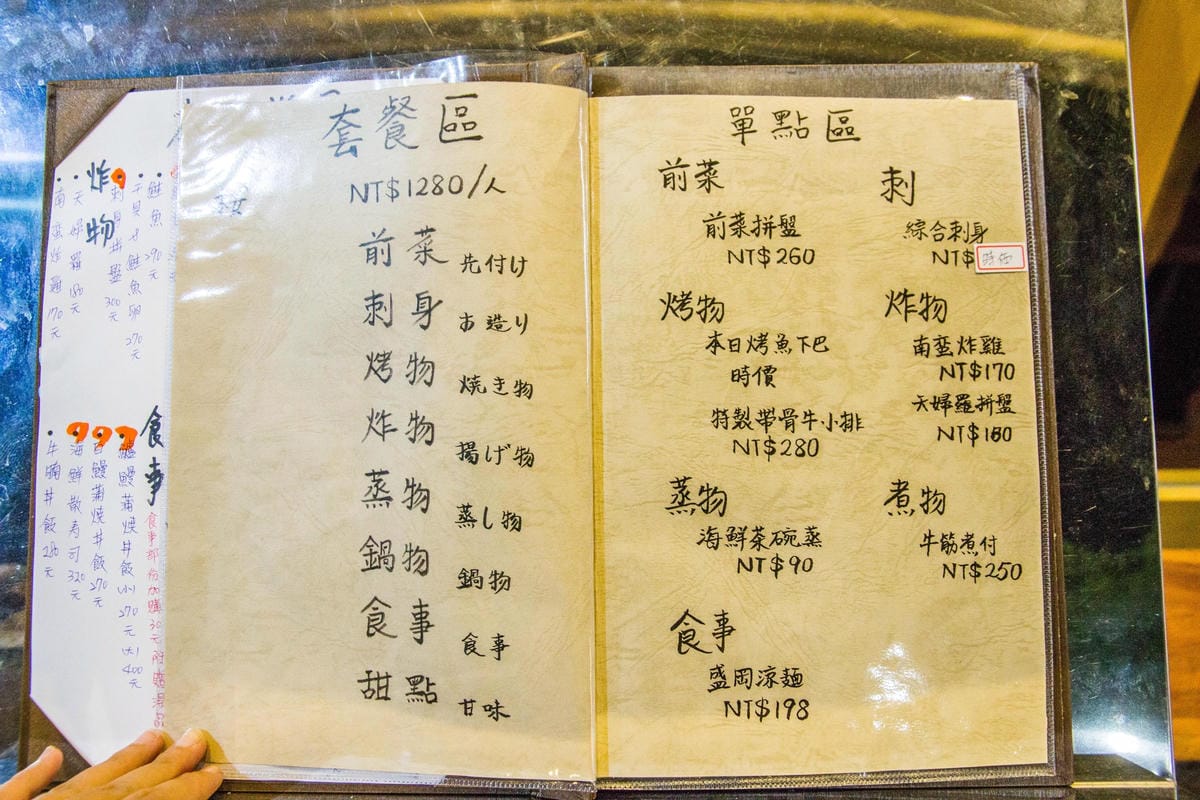 炸物
南蛮炸雞 170元
天婦羅 180元
刺身丼盤 300元
干貝+鮭魚卵 270元
鮭魚 290元
食事
牛腩丼飯 280元
海鮮散寿司 320元
白鰻蒲焼丼飯 270元
鰻蒲焼丼飯 小270元 大400元
套餐區
NT$1280/人
前菜 先付け
刺身 お造り
烤物 焼き物
炸物 揚げ物
蒸物 蒸し物
鍋物 鍋物
食事 食事
甜點 甘味
單點區
前菜
前菜拼盤
NT$260
烤物
本日烤魚下巴
時價
特製帶骨牛小排
NT$280
蒸物
海鮮茶碗蒸
NT$90
食事
盛岡涼麵
NT$198
刺
綜合刺身
NT$ 時価
炸物
南蛮炸雞
NT$170
天婦羅拼盤
煮物
牛筋煮付
NT$250